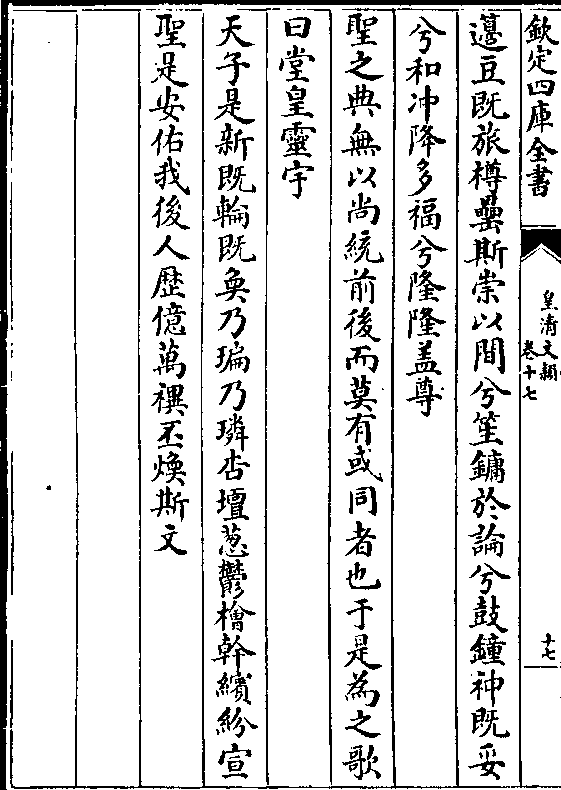 欽定四庫全書
皇清文穎
卷十七
十七
籩豆既旅樽罍斯崇以間兮笙鏞於論兮鼓鐘神既妥
兮和冲降多福兮隆隆盖尊
聖之典無以尚統前後而莫有或同者也于是為之歌
曰堂皇靈宇
天子是新既輪既奐乃㻞乃璘杏壇葱鬱檜幹繽紛宣
聖是安佑我後人歴億萬禩丕煥斯文